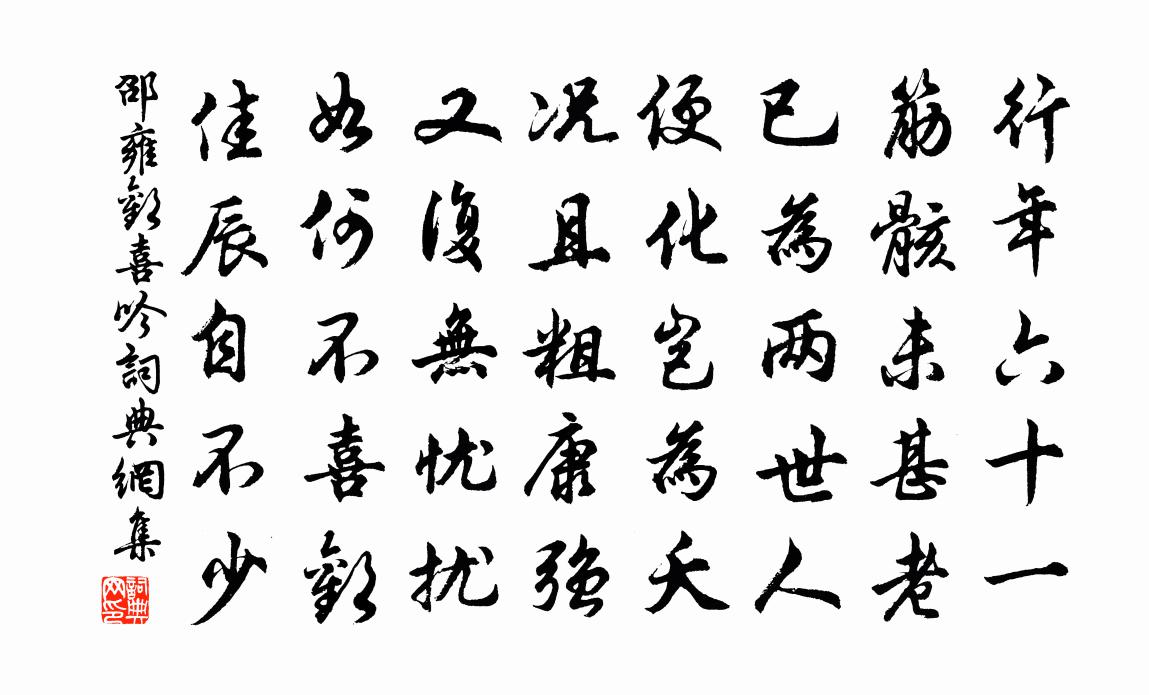 行年六十一
筋骸未甚老
已為兩世人
便化岂為夭
况且粗康強
又復無忧扰
如何不喜歡
佳辰自不少
邵雍歡喜吟詞典網集
詞典网印